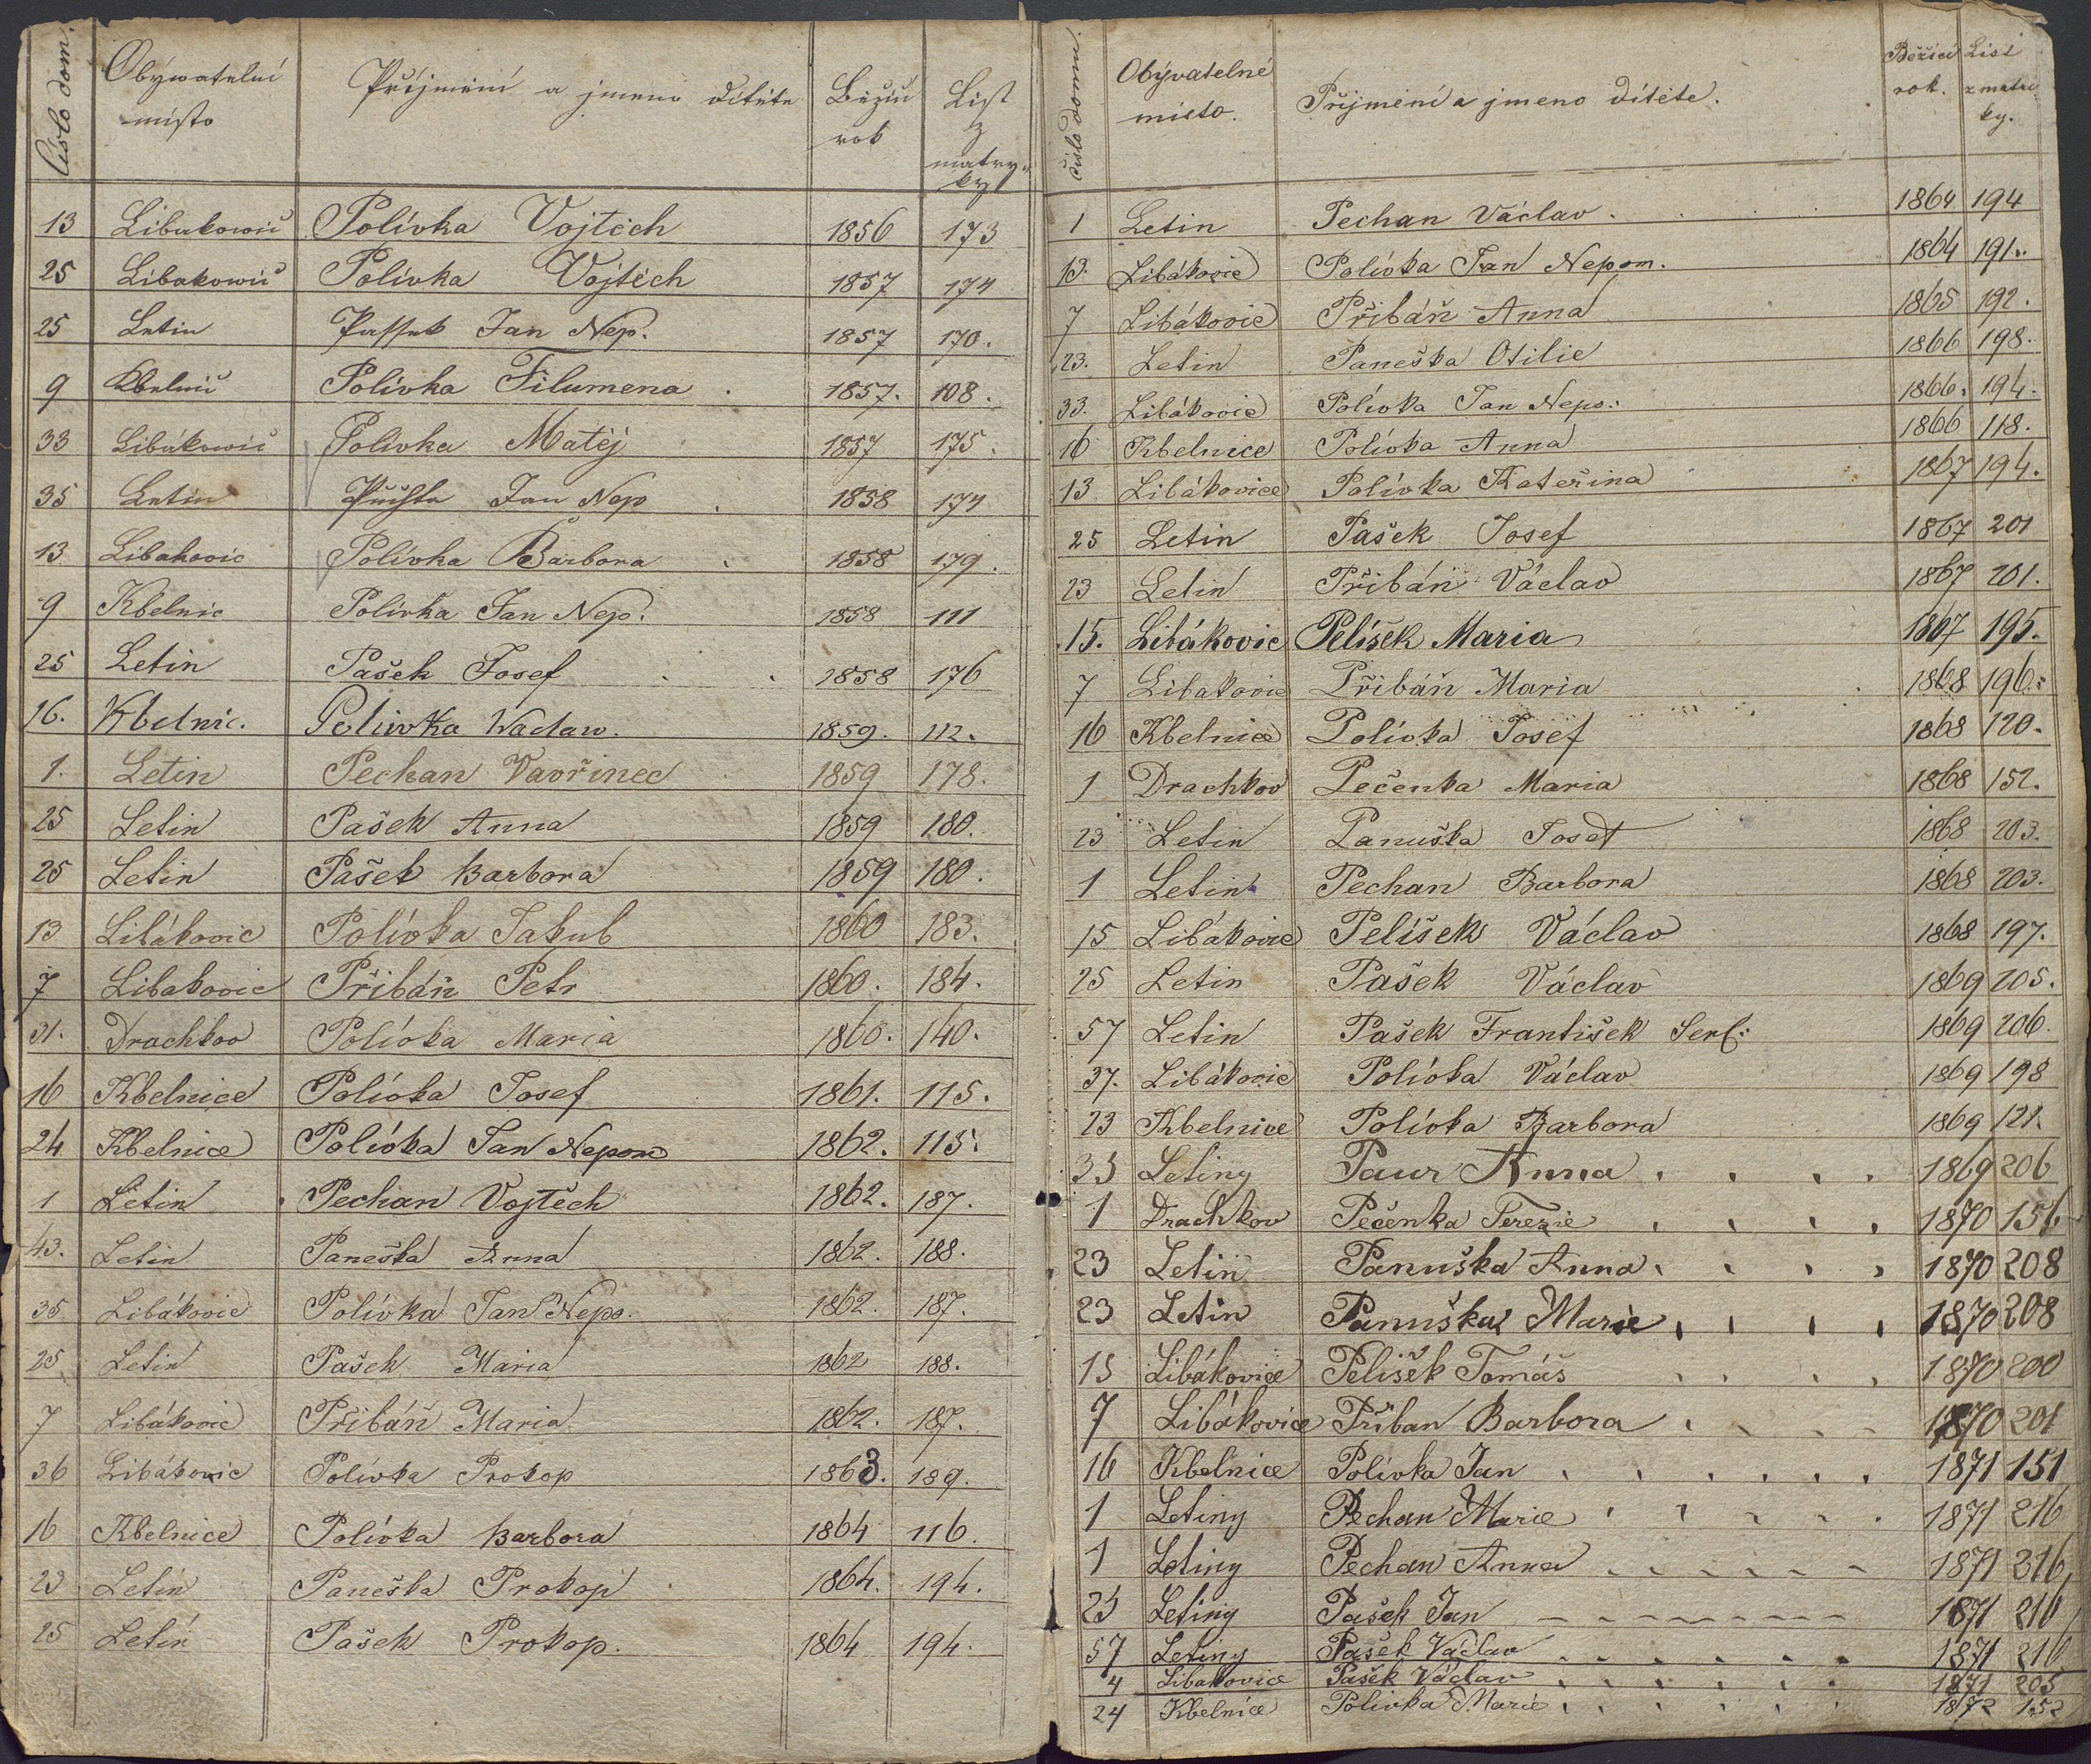 Číslo dom.
Obývatelní místo
Příjmíní a jmeno dítěte
Běžící rok
List z matryky
13 Libakowic Polívka Vojtěch 1856 173
25 Libakowic Polívka Vojtěch 1857 174
25 Letin Jan Nep. 1857 170.
9 Kbelnic Polívka Filumena . 1857. 108.
33 Libákowic Polivka Matěj 1857 175.
35 Letin Jan Nep . 1858 174
13 Libakovic Polívka Barbora . 1858 179.
9 Kbelnic Polívka Jan Nep. 1858 111
25 Letin Pašek Josef . . 1858 176
16. Kbelnic. Polivka Waclaw. 1859. 112.
1. Letin Pechan Vavřinec 1859 178.
25 Letin Pašek Anna 1859 180.
25 Letin Pašek Barbora 1859 180.
13 Libákovic Polívka Jakub 1860 183.
7 Libakovic Přibáň Petr 1860. 184.
31. Drachkov Polívka Maria 1860. 140.
16 Kbelnice Polívka Josef 1861. 115.
24 Kbelnice Polívka Jan Nepom 1862. 115.
1 Letin Pechan Vojtěch 1862. 187.
43. Letin Paneška Anna 1862. 188.
35 Libákovic Polívka Jan Nepo. 1862. 187.
25 Letin Pašek Maria 1862 188.
7 Libákovic Přibáň Maria 1862. 187.
36 Libákovic Polívka Prokop 1863. 189.
16 Kbelnice Polívka Barbora 1864 116.
23 Letin Paneška Prokop 1864. 194.
25 Letin Pašek Prokop. 1864 194.
Číslo domu.
Obývatelné místo.
Příjmení a jmeno dítěte.
Běžící rok.
List z matriky.
1 Letin Pechan Václav . 1864 194
13. Libákovic Polívka Jan Nepom. 1864 191.
7 Libákovic Přibáň Anna 1865 192.
23. Letin Paneška Otilie 1866 198.
33. Libákovic Polívka Jan Nepo: 1866. 194.
16 Kbelnice Polívka Anna 1866 118.
13 Libákovice Polívka Kateřina 1867 194.
25 Letin Pašek Josef 1867 201
23 Letin Přibáň Václav 1867 201.
15. Libákovic Pelíšek Maria 1867 195.
7 Libakovic Přibáň Maria 1868 196.
16 Kbelnice Polívka Josef 1868 120.
1 Drachkov Pečenka Maria 1868 152.
23 Letin Panuška Josef 1868 203.
1 Letin Pechan Barbora 1868 203.
15 Libákovic Pelíšek Václav 1868 197.
25 Letin Pašek Václav 1869 205.
57 Letin Pašek František Serf: 1869 206.
37. Libákovic Polívka Václav 1869 198
23 Kbelnice Polívka Barbora 1869 121.
33 Letiny Paur Anna . . . . 1869 206
1 Drachkov Pečenka Terezie . . . . 1870 156
23 Letin Panuška Anna . . . . 1870 208
23 Letin Panuška Marie . . . . 1870 208
15 Libákovice Pelíšek Tomáš . . . . 1870 200
7 Libákovice Přiban Barbora . . . . 1870 201
16 Kbelnice Polívka Jan . . . . . . 1871 151
1 Letiny Pechan Marie . . . . . 1871 216
1 Letiny Pechan Anna - - - - - - 1871 316
25 Letiny Pašek Jan - - - - - - - - 1871 216
57 Letiny Pašek Václav . . . . . . 1871 216
4 Libakovice Pašek Václav . . . . . . 1871 205
24 Kbelnice Polivka Marie . . . . . . 1872 152